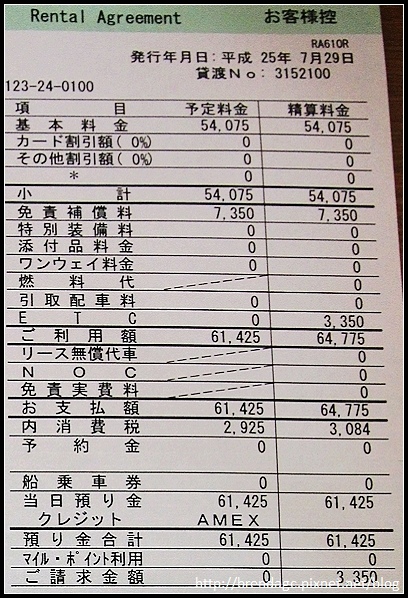 Rental Agreement お客様控
RA610R
発行年月日:平成 25年 7月29日
貸渡No: 3152100
123-24-0100
項目 予定料金 精算料金
基本料金 54,075 54,075
カード割引額( 0%) 0 0
その他割引額( 0%) 0 0
* 0 0
小計 54,075 54,075
免責補償料 7,350 7,350
特別装備料 0 0
添付品料金 0 0
ワンウェイ料金 0 0
燃料代 0
引取配車料 0 0
ETC 0 3,350
ご利用額 61,425 64,775
リース無償代車 0
NOC 0
免責実費料 0
お支払額 61,425 64,775
内消費税 2,925 3,084
予約金 0 0
船乗車券 0 0
当日預り金 61,425 61,425
クレジット AMEX
預り金合計 61,425 61,425
マイル・ポイント利用 0 0
ご請求金額 0 3,350